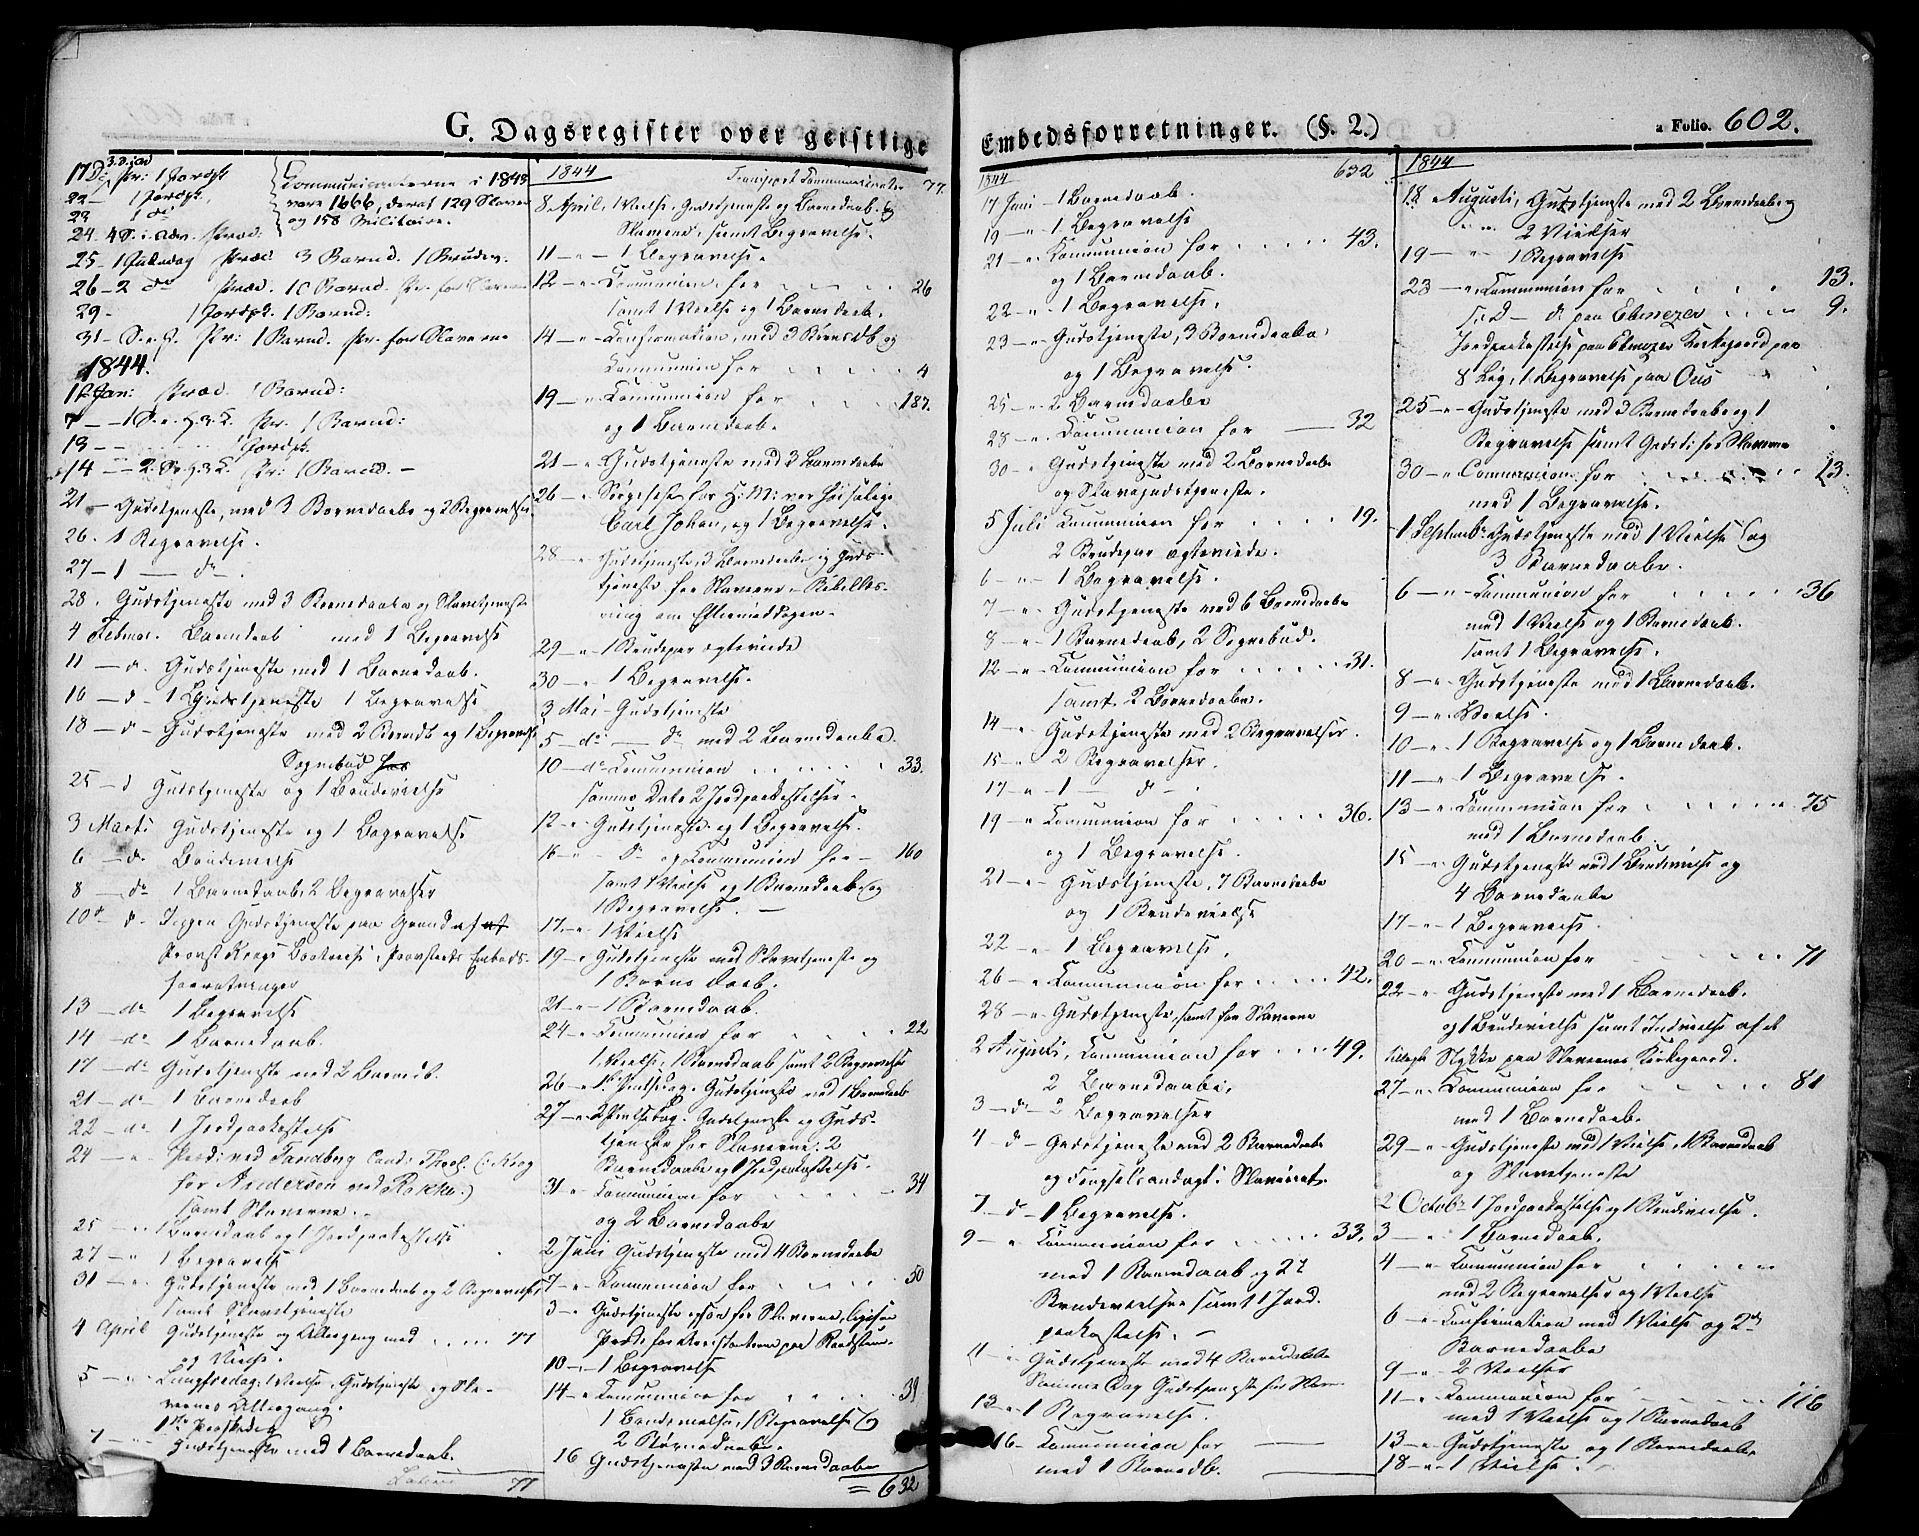 G. Dagsregister over geistlige
Embedsforretninger. (§. 2.)
a Folio. 602.
Communicanterne i 1843
vare 1666, deraf 129 Slaver
og 158 Militaire.
24. 4 S. i Adv. Præd.
25 - 1 Juledag Præd. 3 Barnd. 1 Brudev.
26 - 2 do Præd. 10 Barnd. Pr. for Slaverne
29 - 1 Jordpk. 1 Barnd:
31 - S. e. J. Pr: 1 Barnd. Pr. for Slaverne
1844.
1 Jan: Præd. 1 Barnd:
7 - 1 S. e. H. 3 K. Pr. 1 Barnd:
13 - 1 Jordpk.
14 - 2 S. e. H. 3 K. Pr: 1 Barnd. -
21 - Gudstjeneste, med 3 Barnedaabe og 2 Begravelser
26. 1 Begravelse.
27 - 1 - do -
28. Gudstjeneste med 3 Barnedaabe og Slavetjeneste
4 Februar. Barnedaab med 1 Begravelse
11 - d. Gudstjeneste med 1 Barnedaab.
16 - d - 1 Gudstjeneste 1 Begravelse
18 - d - Gudstjeneste med 2 Barnedb og 1 Begravelse
Sognebud
25 - d Gudstjeneste og 1 Brudevielse
3 Marts Gudstjeneste og 1 Begravelse
6 - do Brudevielse
8 - do 1 Barnedaab, 2 Begravelser
10 - d - Ingen Gudstjeneste paa Grund af
Provst Krogs Bortreise i Provstiets Embeds-
forretninger
13 - do 1 Begravelse
14 - do - 1 Barnedaab.
17 - do Gudstjeneste med 2 Barnedb.
21 - do - 1 Barnedaab
22 - do 1 Jordpaakastelse
24 - " Præd: ved Tandberg Cand: Theol. (: Krog
for Andersen ved Rakke:)
samt Slaverne. -
25 - " 1 Barnedaab og 1 Jordpaakastelse
27 - " 1 Begravelse
31 - " Gudstjeneste med 1 Barnedaab og 2 Begravelser,
samt Slavetjeneste
4 April Gudstjeneste og Altergang med . . . 77
og Vielse.
5 - " - Langfredag: 1 Vielse, Gudstjeneste og Sla-
vernes Altergang.
1ste Paaskedag
7 - " Gudstjeneste med 1 Barnedaab.
77
1844 Transport Communicanter 77.
8 April, 1 Vielse, Gudstjeneste og Barnedaab. Og
Slaverne, samt Begravelse.
11 - " - 1 Begravelse.
12 - " Communion for . . . 26
samt 1 Vielse og 1 Barnedaab.
14 - " Confirmation, med 3 Barnedb og
Communion for . . . 4
19 - " Communion for . . . 187.
og 1 Barnedaab.
21 - " Gudstjeneste med 3 Barnedaabe
26 - " Sørgefest for H: M: vor høisalige
Carl Johan, og 1 Begravelse.
28 - " Gudstjeneste, 3 Barnedaabe og Guds-
tjeneste for Slaverne - Bibellæs-
ning om Eftermiddagen -
29 - " - 1 Brudepar ægteviede
30 - " - 1 Begravelse.
3 Mai - Gudstjeneste
5 - do - do med 2 Barnedaabe.
10 - do Communion . . . 33.
samme Dato 2 Jordpaakastelser.
12 - " Gudstjeneste og 1 Begravelse.
16 - " - do og Communion for - 160
samt 1 Vielse og 1 Barnedaab og
1 Begravelse. -
17 - " - 1 Vielse
19 - " Gudstjeneste med Slavetjeneste og
1 Barne Daab.
21 - " - 1 Barnedaab.
24 - " Communion for . . . 22
1 Vielse, 1 Barnedaab samt 2 Begravelser
26 - " 1ste Pintsedag. Gudstjeneste med 1 Barnedaab
27 - " 2 Pintsedag. Gudstjeneste og Guds-
tjeneste for Slaverne. 2
Barnedaabe og 1 Jordpaakastelse.
31 - " Communion for . . . 34
og 2 Barnedaabe
2 Juni Gudstjeneste med 4 Barnedaabe
7 - " Communion for . . . 50
3 - " Gudstjeneste ogsaa for Slaverne, ligesaa
Præd: for Arrestanterne paa Raadstuen.
10 - " - 1 Begravelse
14 - " Communion for . . . 39
1 Brudevielse, 1 Begravelse Og
2 Barnedaabe.
16 Gudstjeneste med 3 Barnedaabe
= 632
1844 632
17 Juni - 1 Barnedaab.
19 - " - 1 Begravelse
21 - " Communion for . . . 43.
og 1 Barnedaab.
22 - " - 1 Begravelse.
23 - " Gudstjeneste, 3 Barnedaabe
og 1 Begravelse.
25 - " 2 Barnedaabe
28 - " Communion for - 32
30 - " Gudstjeneste med 2 Barnedaabe
og Slavegudstjeneste.
5 Juli Communion for . . . 19.
2 Brudepar ægteviede.
6 - " - 1 Begravelse.
7 - " Gudstjeneste med 6 Barnedaabe
8 - " 1 Barnedaab, 2 Sognebud.
12 - " Communion for . . . 31.
samt 2 Barnedaabe.
14 - " Gudstjeneste med 2 Begravelser.
15 " 2 Begravelser.
17 - " - 1 - do -
19 - " Communion for . . . 36.
og 1 Begravelse.
21 - " - Gudstjeneste, 7 Barnedaabe
og 1 Brudevielse
22 - " 1 Begravelse.
26 - " Communion for . . . 42.
28 - " Gudstjeneste, samt for Slaverne
2 Augusti, Communion for . . . 49.
2 Barnedaabe.
3 - do - 2 Begravelser
4 - d - Gudstjeneste med 2 Barnedaabe
og Fængselsandagt i Slaveriet.
7 - d - 1 Begravelse.
9 - " Communion for . . . 33.
med 1 Barnedaab og 2
Brudevielser samt 1 Jord.
paakastelse. -
11 - " Gudstjeneste med 4 Barnedaabe
Samme Dag Gudstjeneste for Slaver
13 - " 1 Begravelse.
16 - Communion for -
med 1 Barnedb.
1844
18 Augusti, Gudstjeneste med 2 Barnedaabe og
" " 2 Vielser
19 - " 1 Begravelse
23 - " Communion for . . . 13.
do paa Ebenezer . . . 9.
Jordpaakastelse paa Ebenezer Kirkegaard paa
8 Lig, 1 Begravelse paa Ous
25 - " Gudstjeneste med 3 Barnedaabe og 1
Begravelse samt Gudstj: for Slaverne
30 - " Communion for . . . 13.
med 1 Begravelse.
1 Septembr Gudstjeneste med 1 Vielse og
3 Barnedaabe.
6 - " Communion for . . . 36
med 1 Vielse og 1 Barnedaab.
samt 1 Begravelse.
8 - " Gudstjeneste med 1 Barnedaab.
9 - " Vielse.
10 - " 1 Begravelse og 1 Barnedaab.
11 - " 1 Begravelse.
13 - " Communion for . . . 75
med 1 Barnedaab.
15 - " Gudstjeneste med 1 Brudevielse og
4 Barnedaabe
17 - " - 1 Begravelse.
20 - " Communion for . . . 71
22 - " Gudstjeneste med 1 Barnedaab.
og 1 Brudevielse samt Indvielse af et
Stykke paa Slavernes Kirkegaard.
27 - " Communion for . . . 81
med 1 Barnedaab.
29 - " Gudstjeneste med 1 Vielse, 1 Barnedaab
og Slavetjeneste
2 Octobr 1 Jordpaakastelse og 1 Brudevielse.
3 - " 1 Barnedaab.
4 - " Communion for . . .
med 2 Begravelser og 1 Vielse
6 - " Confirmation med 1 Vielse og 2de
Barnedaabe
9 - " 2 Vielser
11 - " Communion for . . . 116
med 1 Vielse og 1 Barnedaab
13 - " Gudstjeneste og 1 Barnedaab
18 - " - 1 Vielse.